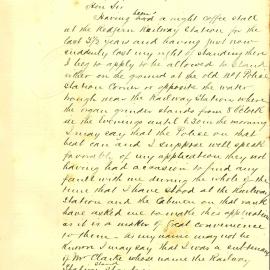 Hon Sir
Having had a night coffee stall
at the Redfern Railway Station for the
last 3½ years and having just now
suddenly lost my right of standing there
I beg to apply to be allowed to stand
either on the ground at the old No 1 Police
Station Corner or opposite the water
trough near the Railway Station where
the organ grinder stands from 8 o'clock
in the evenings until 6.30 in the morning
I may say that the Police on that
beat can and I suppose will speak
favorably of my application they not
having had occasion to find any
fault with me during the whole of the
time that I have stood at the Railway
Station and the Cabmen on that rank
have asked me to make this application
as it is a matter of great convenience
to them as my name may not be
known I may say that I was a
of Mr Clarke whose name the Railway
Station